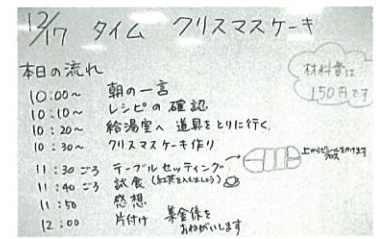 12/17 タイム クリスマスケーキ
本日の流れ
材料費は
150円です
10:00～ 朝の一言
10:10～ レシピの確認
10:20～ 給湯室へ 道具をとりに行く
10:30～ クリスマスケーキ作り
11:30ごろ テーブルセッティング
11:40ごろ 試食(紅茶を入れましょう)
11:50 感想
12:00 片付け 集金係を
おねがいします